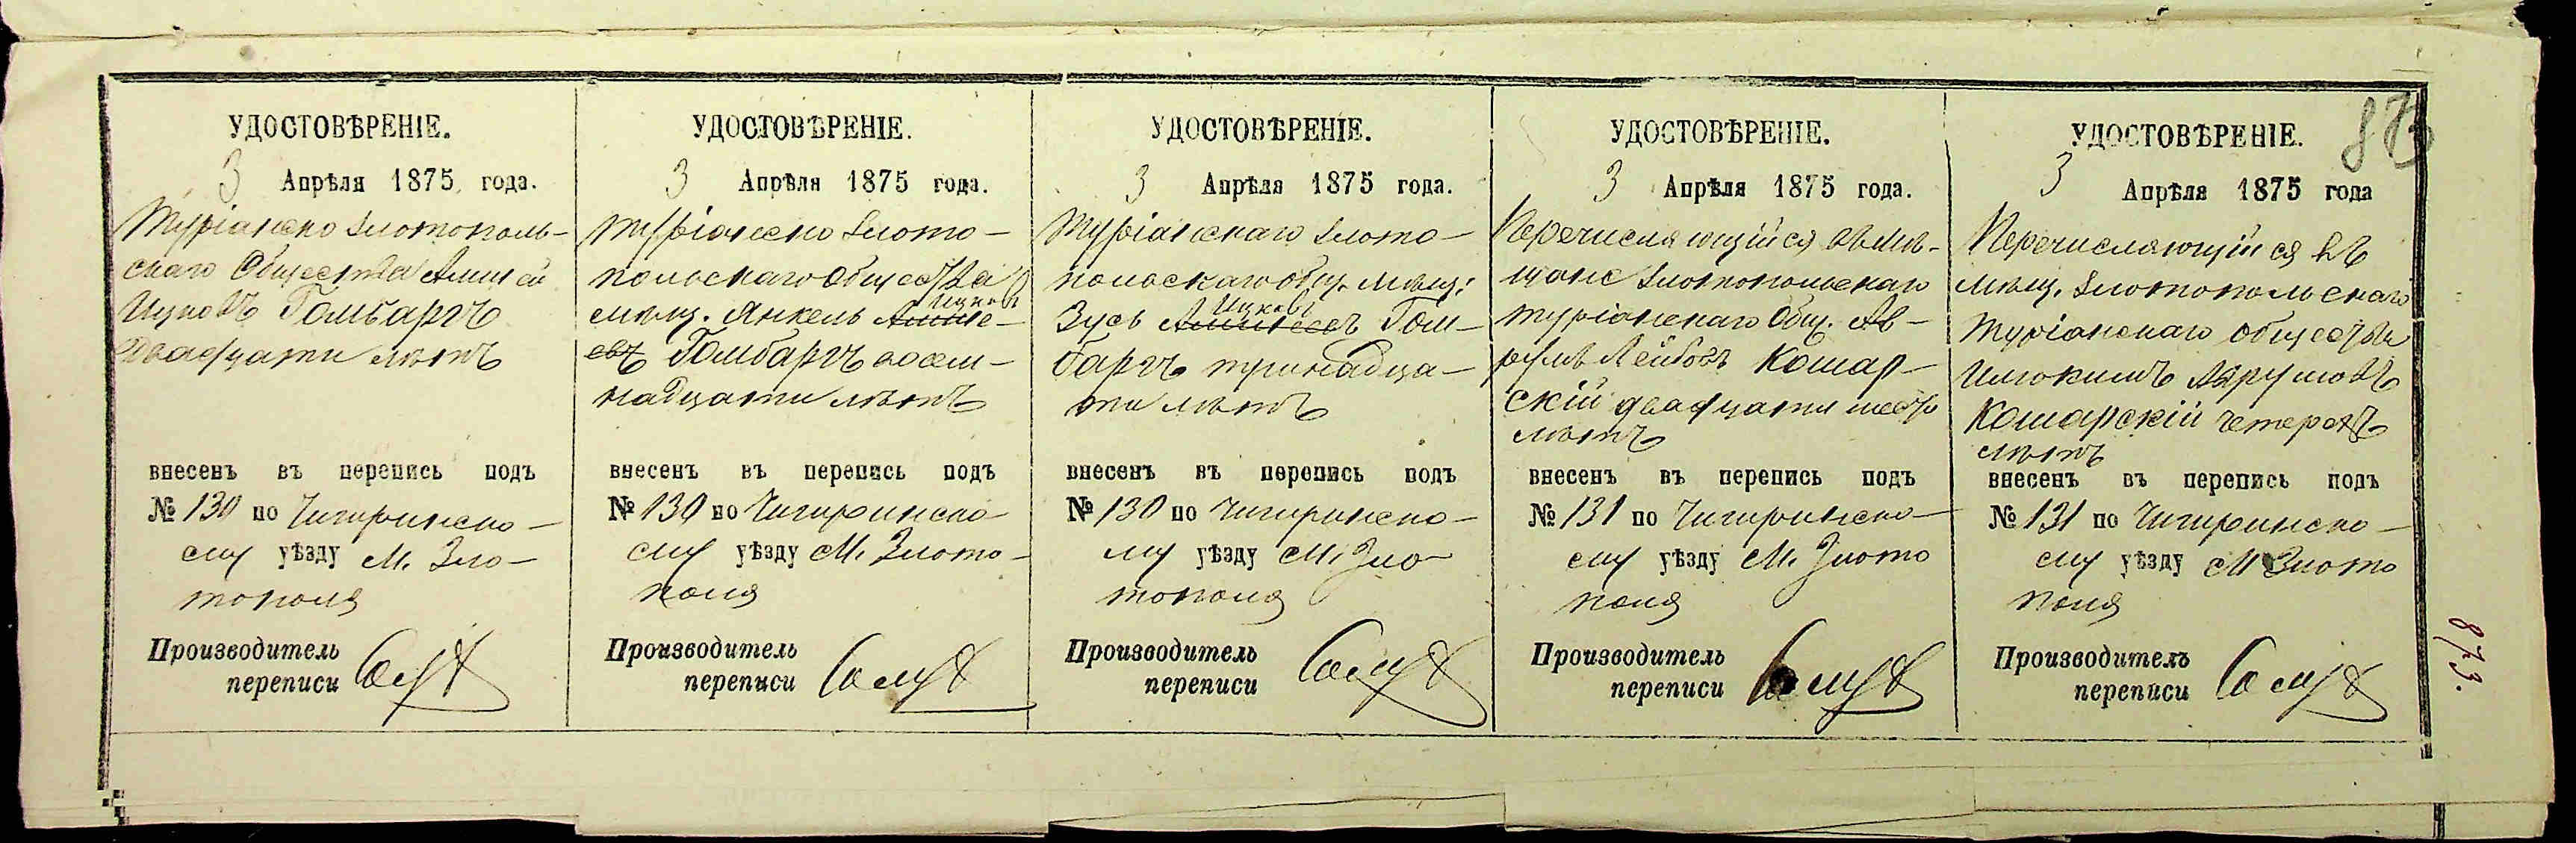 873
УДОСТОВѢРЕНІЕ.
3 Апрѣля 1875 года.
Туріанско Златополь-
скаго Общества
Ицковъ Гомбаргъ
Двадцати лѣтъ
внесенъ въ перепись подъ
№ 130 по Чигиринско-
му уѣзду М. Зло-
тополя
Производитель
переписи
УДОСТОВѢРЕНІЕ.
3 Апрѣля 1875 года.
Туріанско Злато-
польскаго Общества
Ицковъ
мѣщ. Янкель
евъ Гомбаргъ восем-
надцати лѣтъ
внесенъ въ перепись подъ
№ 130 по Чигиринско-
му уѣзду М. Злото-
поля
Производитель
переписи
УДОСТОВѢРЕНІЕ.
3 Апрѣля 1875 года.
Туріанскаго Злото-
польскаго общ. мѣщ.
Ицковъ
Зусь Гом-
баргъ тринадца-
ти лѣтъ
внесенъ въ перепись подъ
№ 130 по Чигиринско-
му уѣзду М. Зло-
тополя
Производитель
переписи
УДОСТОВѢРЕНІЕ.
3 Апрѣля 1875 года.
Перечисляющійся въ мѣ-
щане Златопольскаго
Туріанскаго Общ. Ав-
румъ Лейбовъ Кошар-
скій двадцати шести
лѣтъ
внесенъ въ перепись подъ
№ 131 по Чигиринско-
му уѣзду М. Злото
поля
Производитель
переписи
УДОСТОВѢРЕНІЕ.
3 Апрѣля 1875 года
Перечисляющійся въ
мѣщ. Златопольскаго
Туріанскаго общества
Аврумовъ
Кошарскій четерехъ
лѣтъ
внесенъ въ перепись подъ
№ 131 по Чигиринско-
му уѣзду М Злото
поля
Производитель
переписи
873.